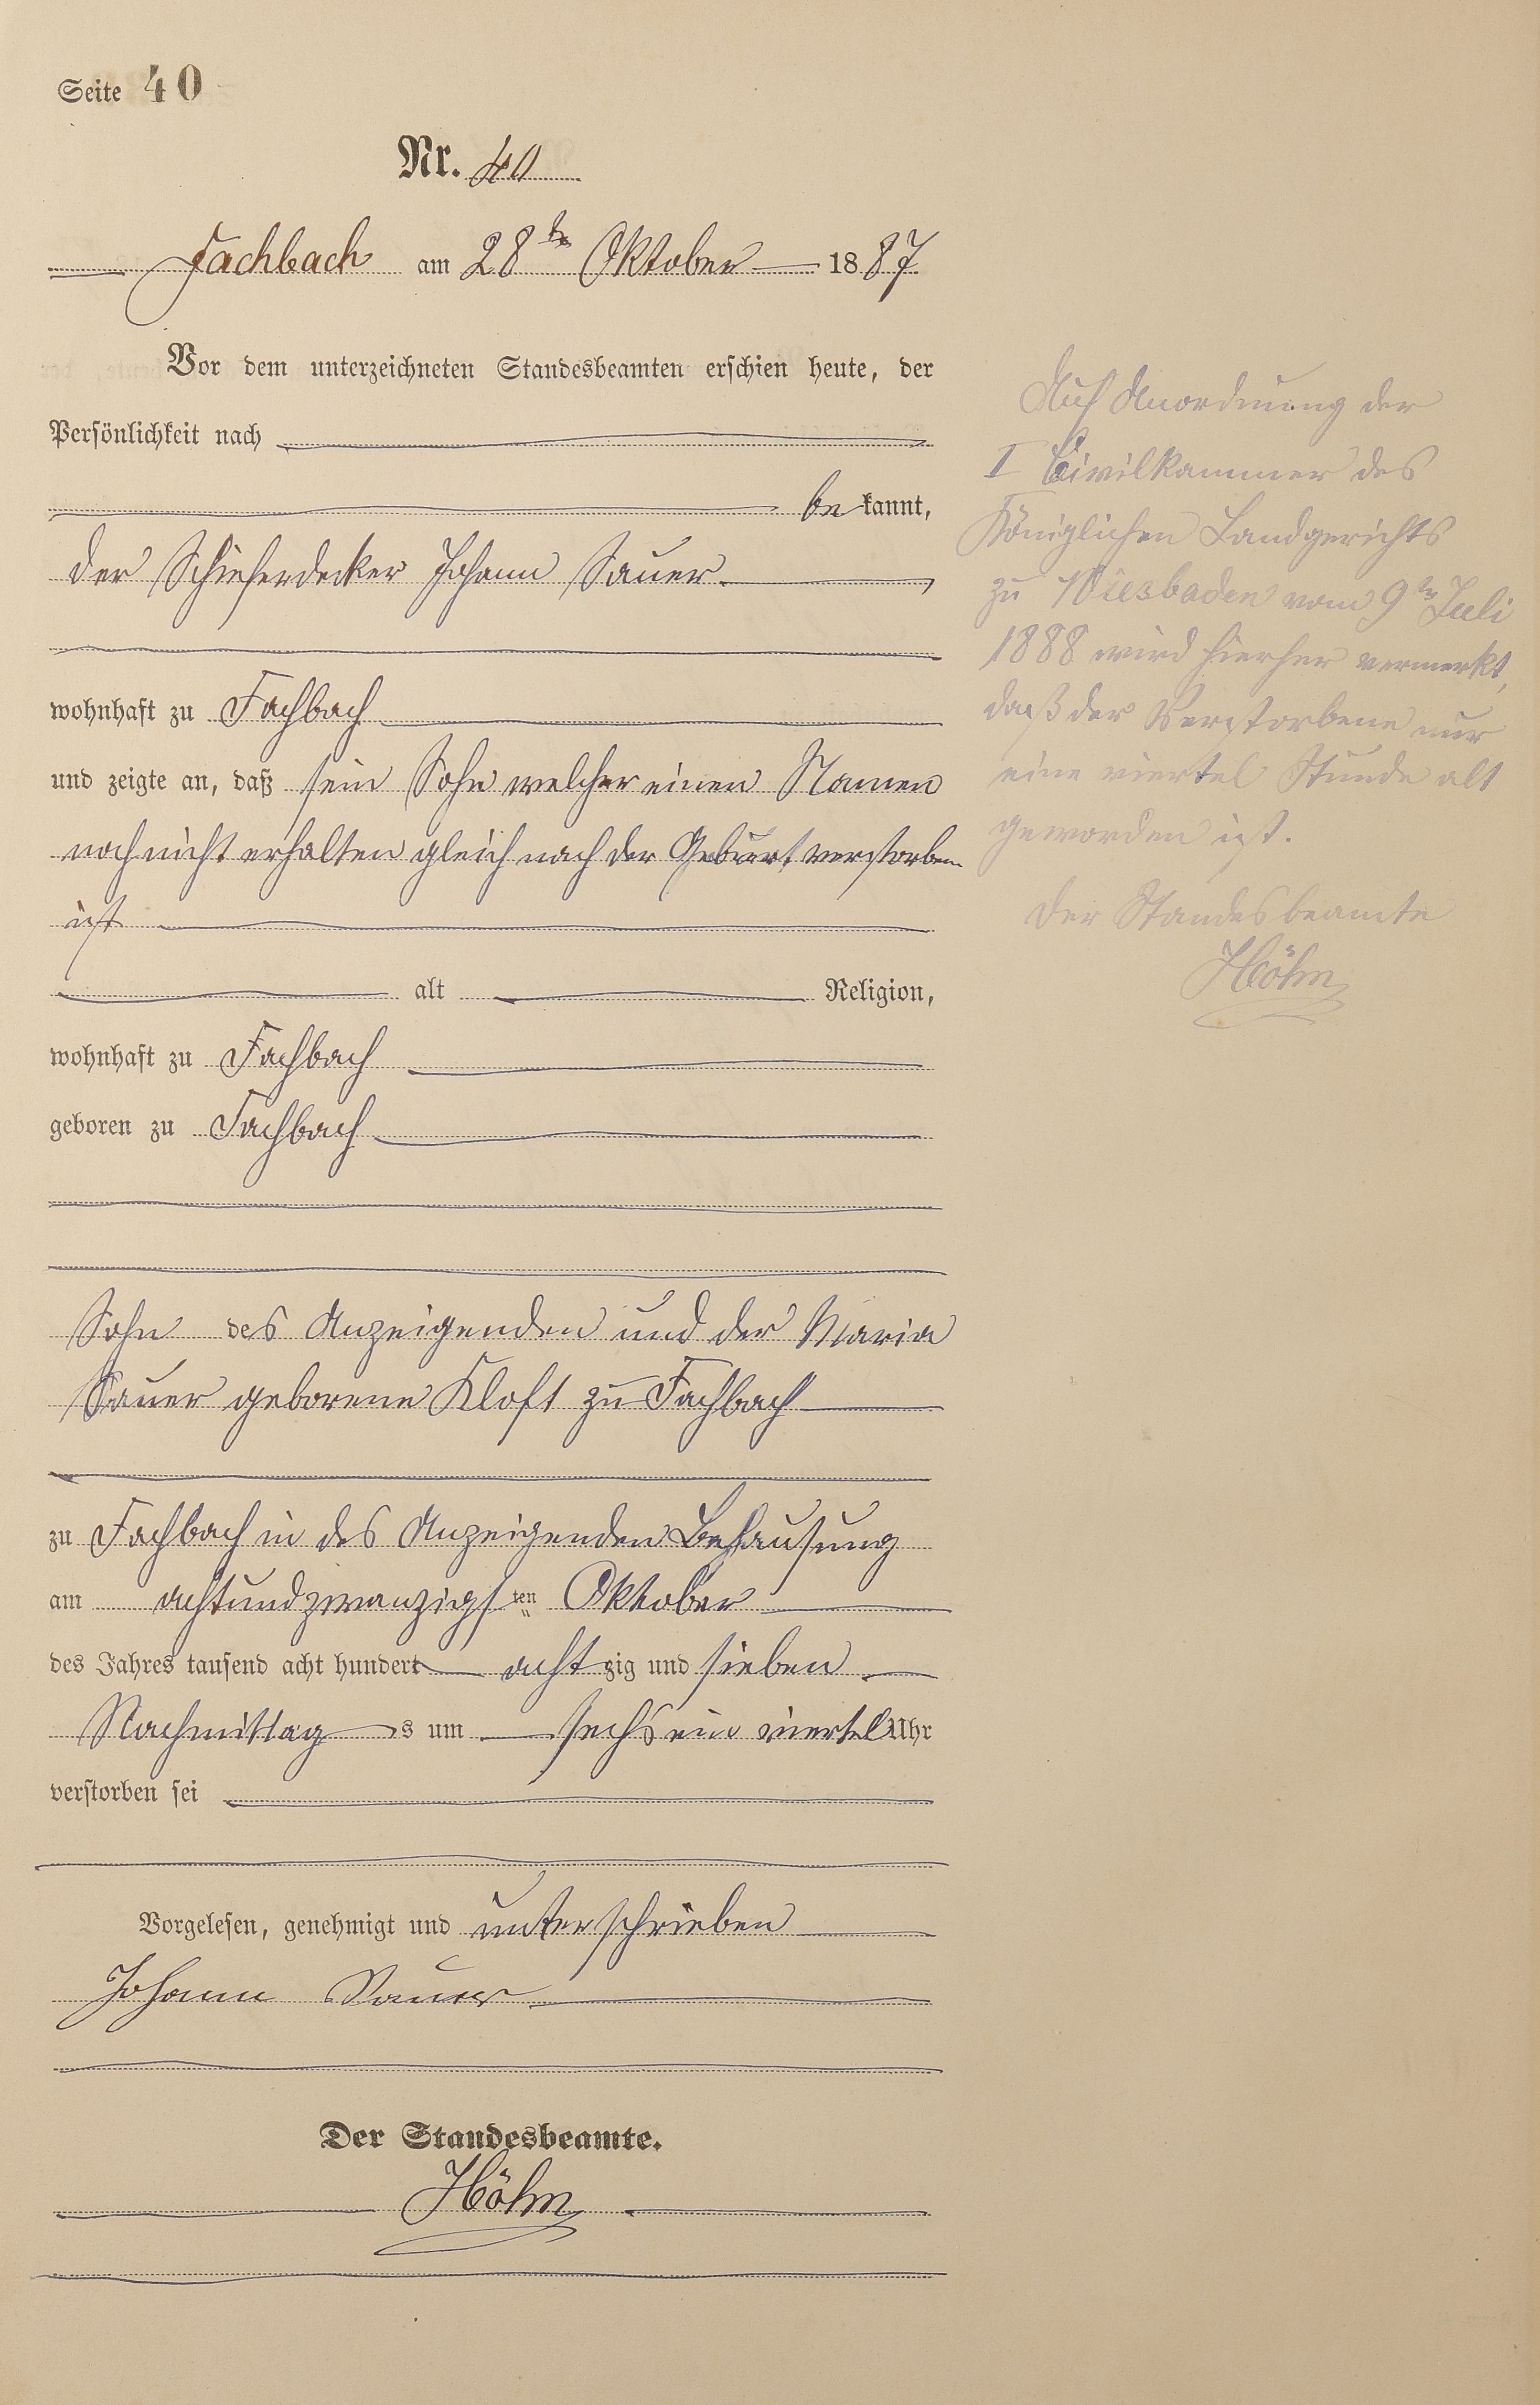 Seite 40
Nr. 40
Fachbach am 28ten Oktober 1887
Vor dem unterzeichneten Standesbeamten erschien heute, der
Persönlichkeit nach
bekannt,
der Schieferdecker Johann Sauer,
wohnhaft zu Fachbach
und zeigte an, daß sein Sohn welcher einen Namen
noch nicht erhalten gleich nach der Geburt verstorben
ist
alt Religion,
wohnhaft zu Fachbach
geboren zu Fachbach
Sohn des Anzeigenden und der Maria
Sauer geborene Kloft zu Fachbach
zu Fachbach in des Anzeigenden Behausung
am achtundzwanzigsten Oktober
des Jahres tausend acht hundert achtzig und sieben
Nachmittags um sechs ein viertel Uhr
verstorben sei
Vorgelesen, genehmigt und unterschrieben
Johann Sauer
Der Standesbeamte.
Höhn
Auf Anordnung der
I Civilkammer des
Königlichen Landgerichts
zu Wiesbaden vom 9ten Juli
1888 wird hierher vermerkt,
daß der Verstorbene nur
eine viertel Stunde alt
geworden ist.
Der Standesbeamte
Höhn